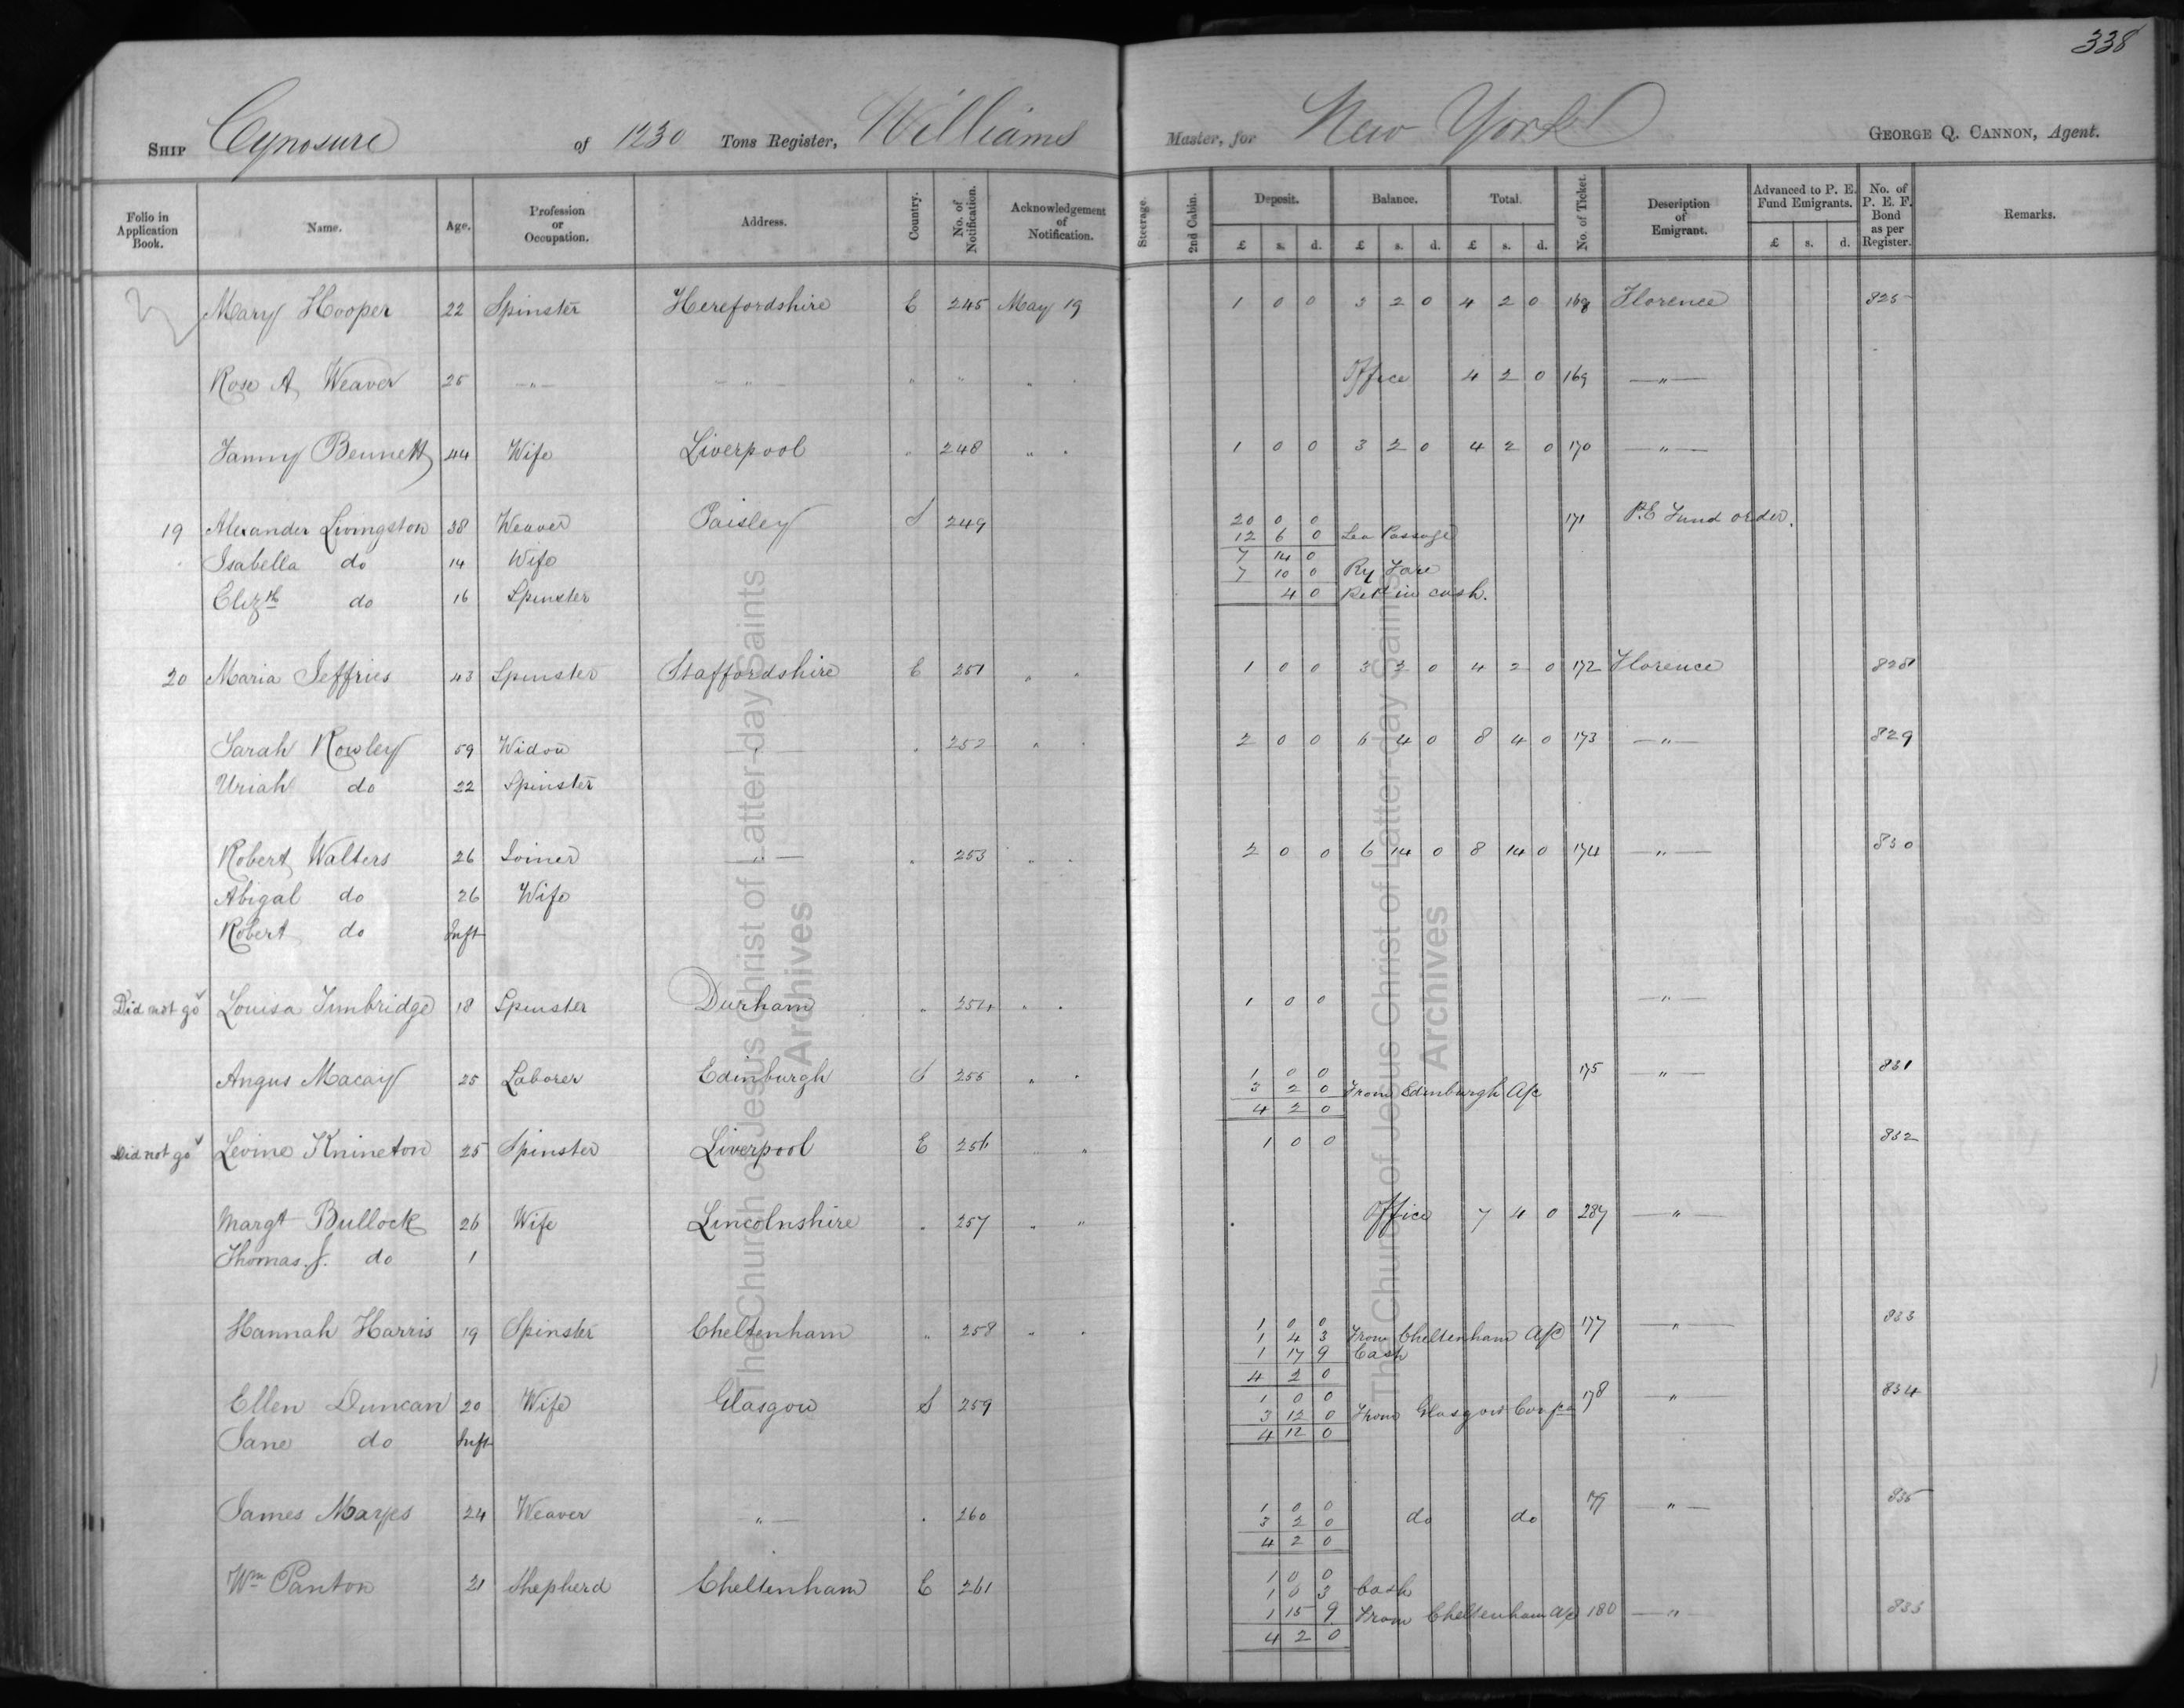 338
Ship Cynosure of 1230 Tons Register, Williams Master, for New York George Q. Cannon, Agent.
Folio in Application Book. Name. Age. Profession or Occupation. Address. Country. No. of Notification. Acknowledgement of Notification. Steerage. 2nd Cabin. Deposit. Balance. Total. No. of Ticket. Description of Emigrant. Advanced to P. E. Fund Emigrants. No. of P. E. F. Bond as per Register. Remarks.
£ s. d. £ s. d. £ s. d. £ s. d.
Mary Hooper 22 Spinster Herefordshire E 245 May 19 1 0 0 3 2 0 4 2 0 168 Florence 825
Rose A Weaver 25 —"— —"— " " " " Office 4 2 0 169 —"—
Fanny Bennett 44 Wife Liverpool " 248 " " 1 0 0 3 2 0 4 2 0 170 —"—
19 Alexander Livingston 38 Weaver Paisley S 249 20 0 0 171 P.E Fund order.
12 6 0 Sea Passage
Isabella do 14 Wife 7 14 0
7 10 0 Ry Fare
Elizth do 16 Spinster 4 0 Retd in cash.
20 Maria Jeffries 43 Spinster Staffordshire E 251 " " 1 0 0 3 2 0 4 2 0 172 Florence 828
Sarah Rowley 59 Widow —"— " 252 " " 2 0 0 6 4 0 8 4 0 173 —"— 829
Uriah do 22 Spinster
Robert Walters 26 Joiner —"— " 253 " " 2 0 0 6 14 0 8 14 0 174 —"— 830
Abigal do 26 Wife
Robert do Inft
Did not go Louisa Tunbridge 18 Spinster Durham " 254 " " 1 0 0 —"—
Angus Macay 25 Laborer Edinburgh S 255 " " 1 0 0 175 —"— 831
3 2 0 From Edinburgh A/c
4 2 0
Did not go Levine Knineton 25 Spinster Liverpool E 256 " 1 0 0 832
Margt Bullock 26 Wife Lincolnshire " 257 " " Office 7 4 0 287 —"—
Thomas. J. do 1
Hannah Harris 19 Spinster Cheltenham " 258 " " 1 0 0 177 —"— 833
1 4 3 From Cheltenham A/c
1 17 9 Cash
4 2 0
Ellen Duncan 20 Wife Glasgow S 259 1 0 0 178 —"— 834
3 12 0 From Glasgow
Jane do Inft 4 12 0
James 24 Weaver —"— " 260 1 0 0 179 —"— 835
3 2 0 do do
4 2 0
Wm Panton 21 Shepherd Cheltenham E 261 1 0 0
3 Cash
1 15 9 From Cheltenham A/c 180 —"—
4 2 0
The Church of Jesus Christ of Latter-day Saints
Archives
The Church of Jesus Christ of Latter-day Saints
Archives